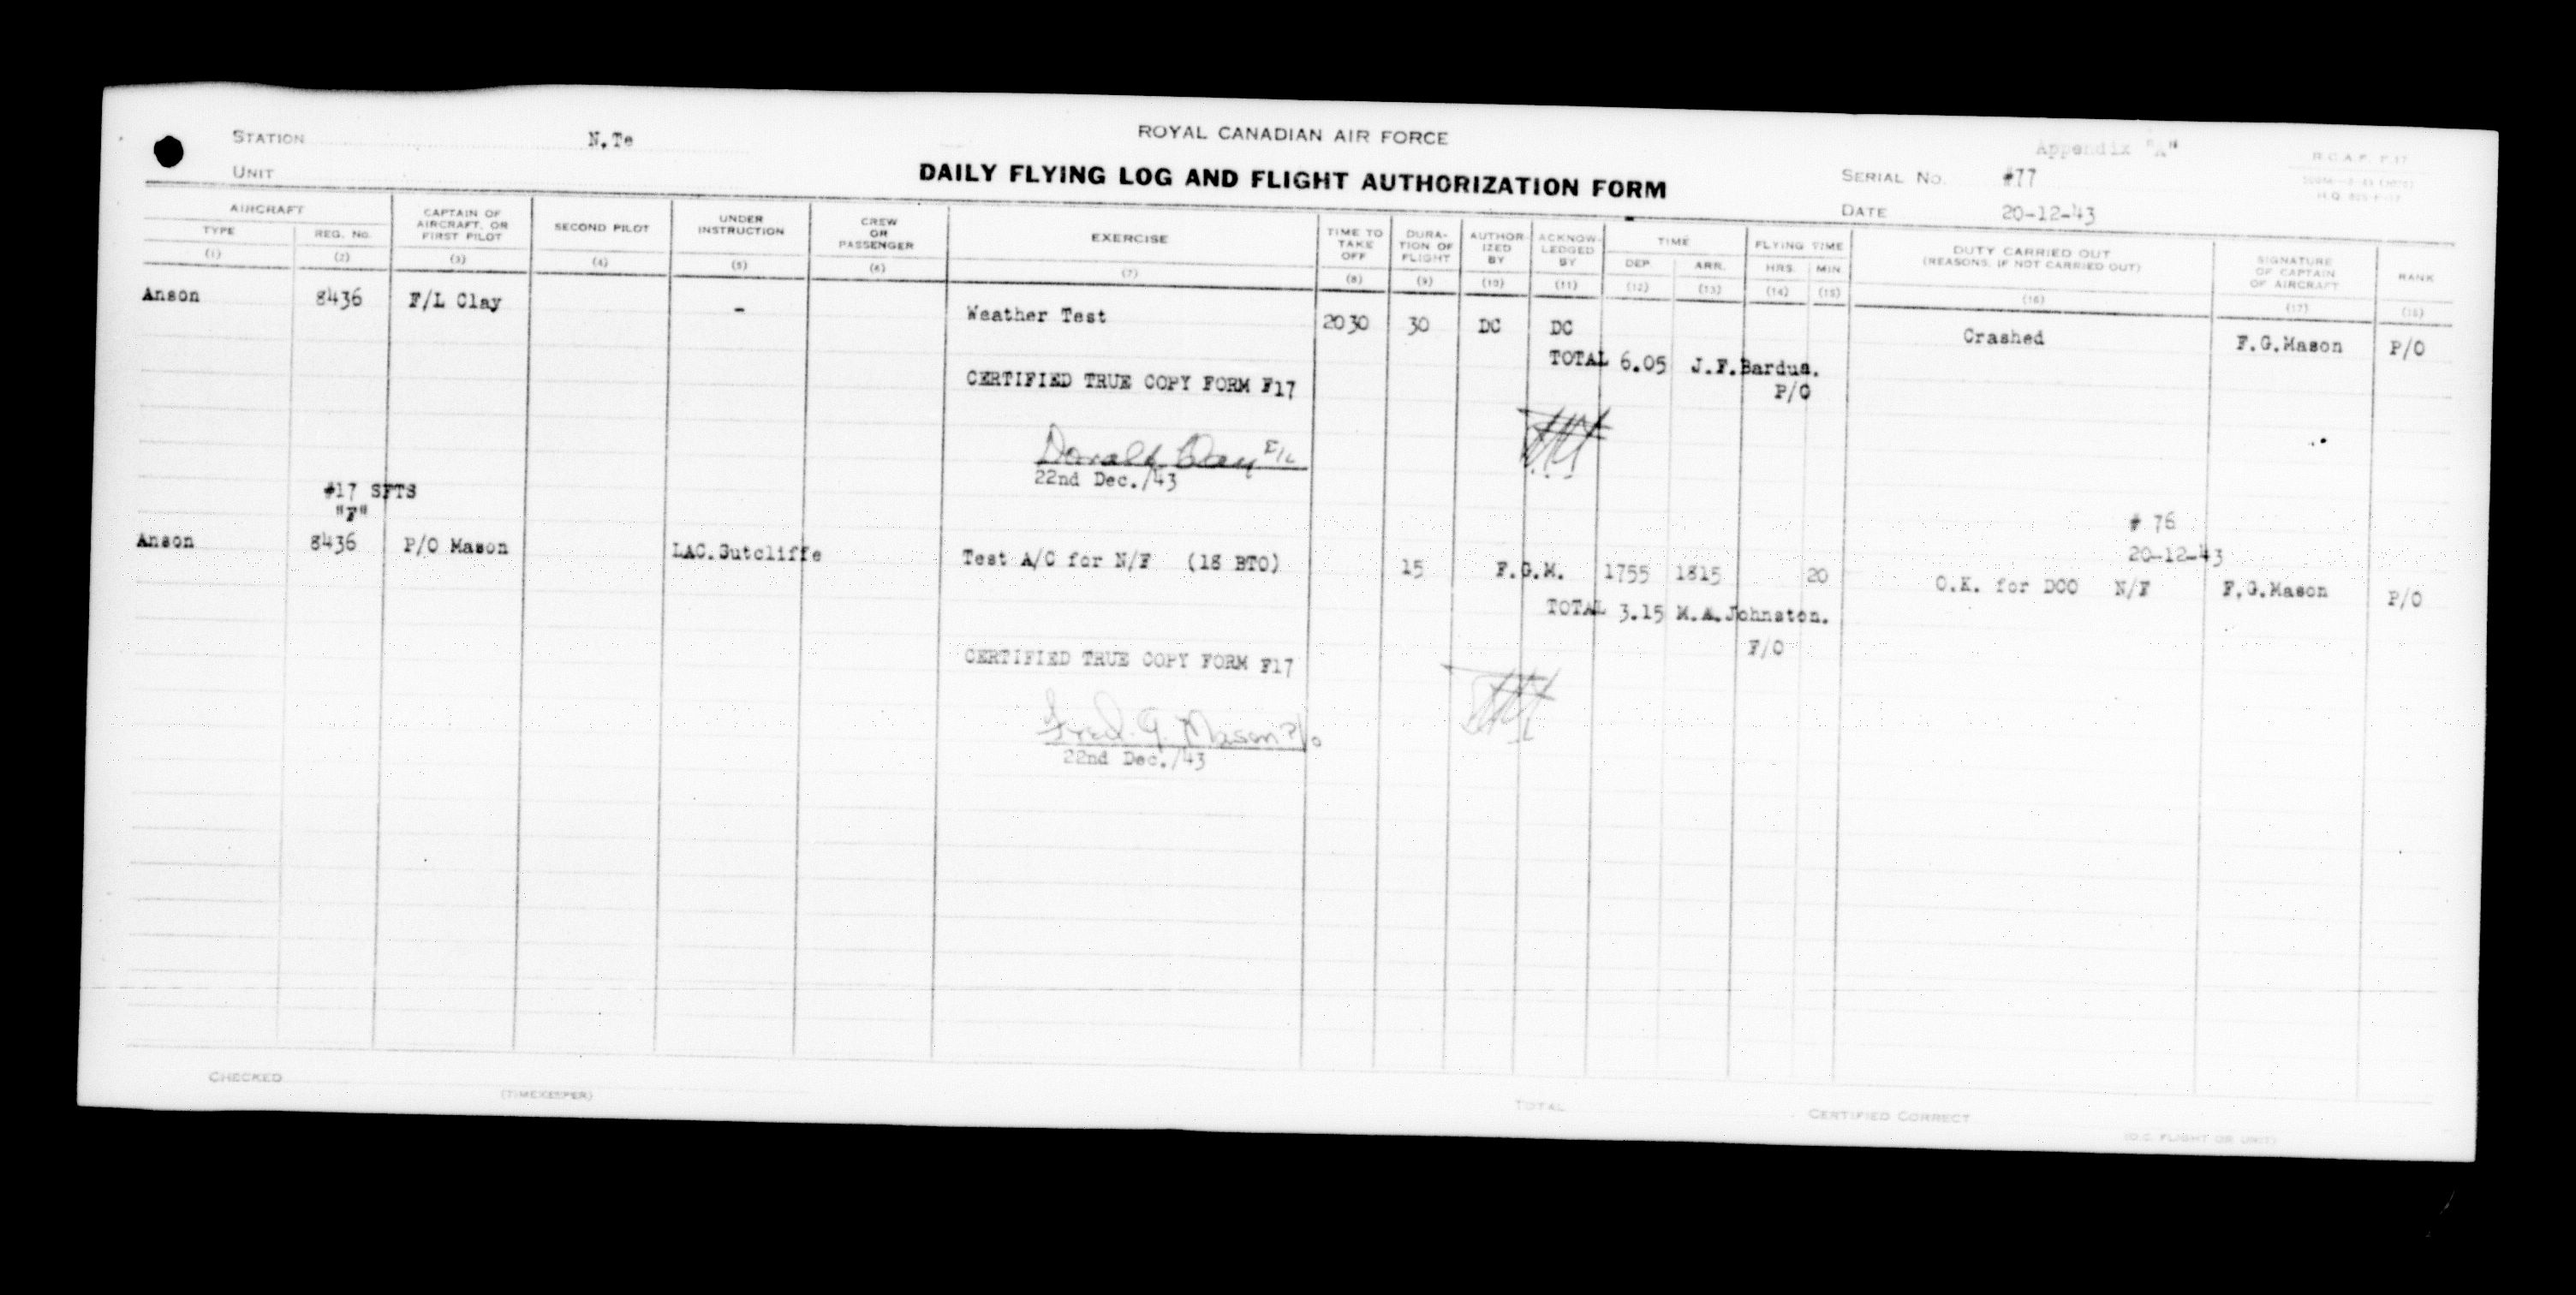 STATION N.Te
ROYAL CANADIAN AIR FORCE
Appendix "A"
R.C.A.F. F.17
UNIT
DAILY FLYING LOG AND FLIGHT AUTHORIZATION FORM
SERIAL No. #77
DATE 20-12-43
AIRCRAFT
TYPE
(1)
REG. No.
(2)
CAPTAIN OF
AIRCRAFT, OR
FIRST PILOT
(3)
SECOND PILOT
(4)
UNDER
INSTRUCTION
(5)
CREW
OR
PASSENGER
(6)
EXERCISE
(7)
TIME TO
TAKE
OFF
(8)
DURA-
TION OF
FLIGHT
(9)
AUTHOR-
IZED
BY
(10)
ACKNOW-
LEDGED
BY
(11)
TIME
DEP.
(12)
ARR.
(13)
FLYING TIME
HRS.
(14)
MIN.
(15)
DUTY CARRIED OUT
(REASONS, IF NOT CARRIED OUT)
(16)
SIGNATURE
OF CAPTAIN
OF AIRCRAFT
(17)
RANK
(18)
Anson 8436 F/L Clay - Weather Test 2030 30 DC DC Crashed F.G.Mason P/O
TOTAL 6.05 J.F.Bardua.
P/O
CERTIFIED TRUE COPY FORM F17
Donald Clay F/L
22nd Dec./43
#17 SFTS
"F"
# 76
20-12-43
Anson 8436 P/O Mason LAC.Sutcliffe Test A/C for N/F (18 BTO) 15 F.G.M. 1755 1815 20 O.K. for DCO N/F F.G.Mason P/O
TOTAL 3.15 M.A.Johnston.
F/O
CERTIFIED TRUE COPY FORM F17
Fred. G. Mason P/O
22nd Dec./43
CHECKED
(TIMEKEEPER)
TOTAL
CERTIFIED CORRECT
(O.C. FLIGHT OR UNIT)